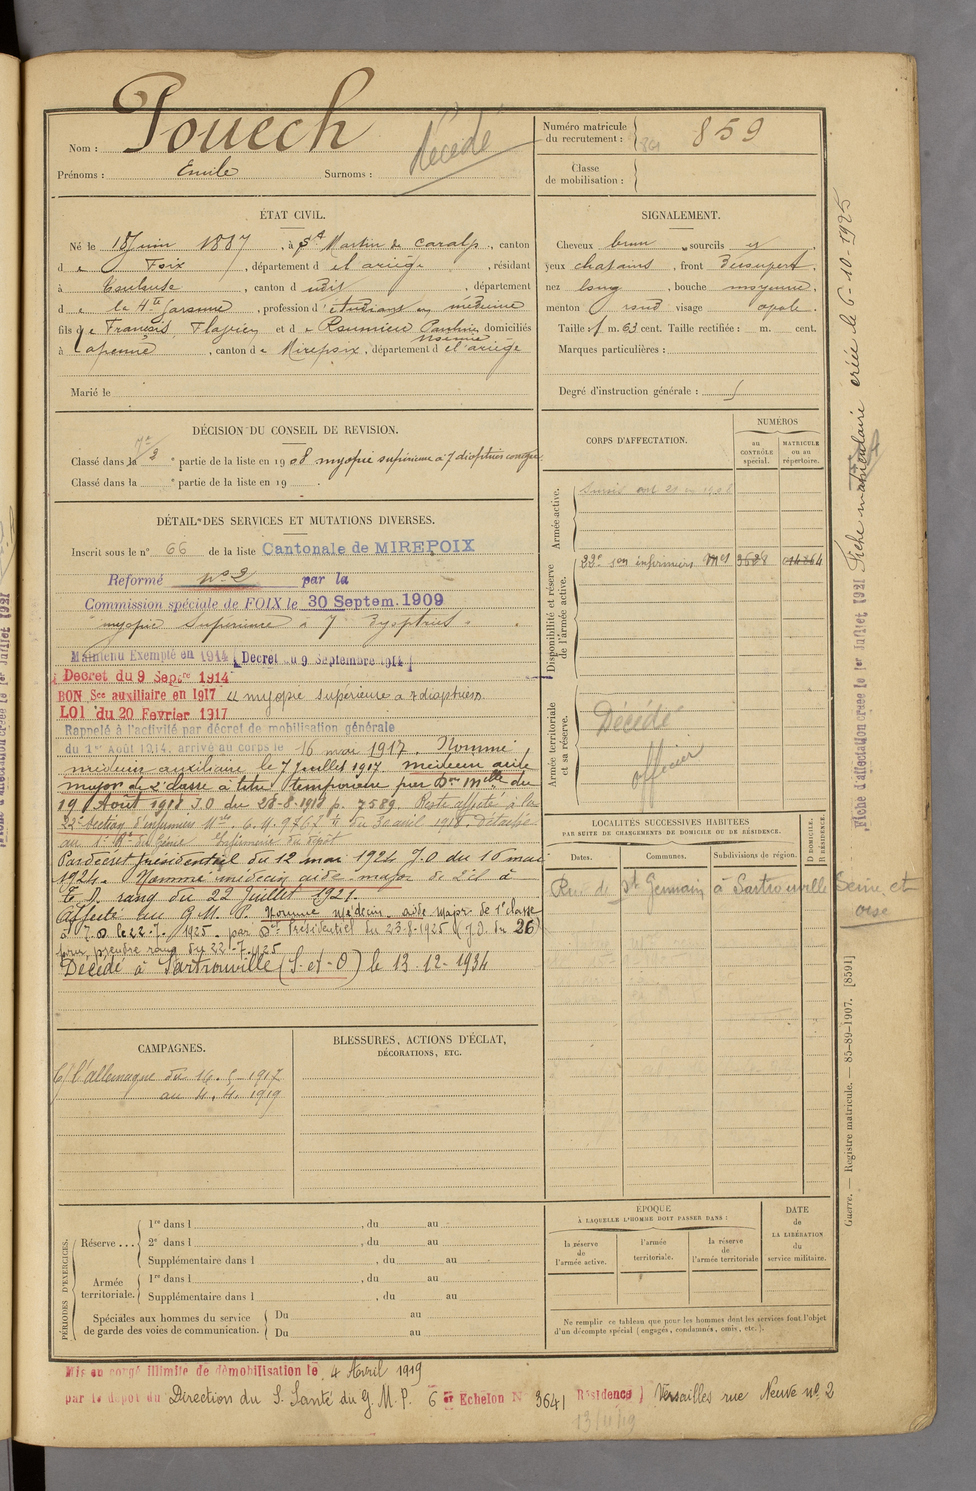 Nom : Pouech
Décédé
Prénoms : Emile Surnoms :
Numéro matricule du recrutement : 859
Classe de mobilisation :
ÉTAT CIVIL.
Né le 18 Juin 1887, à St Martin de Caralp, canton
de Foix, département de l'ariège, résidant
à Toulouse, canton du dit, département
de la Hte Garonne, profession d'étudiant en médecine
fils de François Flavien et de Roumieu Pauline domiciliés
à Lapenne, canton de Mirepoix, département de l'ariège
Marié le
SIGNALEMENT.
Cheveux brun, sourcils id
yeux chatains, front découvert,
nez long, bouche moyenne,
menton rond visage ovale.
Taille : 1 m. 63 cent. Taille rectifiée : m. cent.
Marques particulières :
Degré d'instruction générale :
DÉCISION DU CONSEIL DE REVISION.
Classé dans la 2e partie de la liste en 1908 myopie supérieure à 7 dioptries
Classé dans la e partie de la liste en 19 .
DÉTAIL DES SERVICES ET MUTATIONS DIVERSES.
Inscrit sous le n° 66 de la liste Cantonale de MIREPOIX
Reformé n° 2 par la
Commission spéciale de FOIX le 30 Septem. 1909
myopie supérieure à 7 dyoptries
Maintenu Exempté en 1914 (Decret du 9 Septembre 1914)
Decret du 9 Sepbre 1914
BON Sce auxiliaire en 1917 "myopie supérieure a 7 dioptries
LOI du 20 Fevrier 1917
Rappelé à l'activité par décret de mobilisation générale
du 1er Août 1914, arrivé au corps le 16 mai 1917. Nommé
médecin auxiliaire le 7 Juillet 1917 médecin aide
major de 2e classe à titre temporaire par Don Melle du
19 Août 1918 J.O du 28-8-1918 p. 7589. Reste affecté à la
22e Section d'infirmiers Mres du 30 avril 1918. Détaché
au 1er Rt du Génie Infirmerie du dépôt
Par décret présidentiel du 12 mai 1924 J.O du 16 mai
1924. Nommé médecin aide major de 2e cl à
T. D. rang du 22 Juillet 1921.
Affecté au G. M. P. Nommé Médecin aide major de 1e classe
à T. D. le 22-7-1925 par Det Présidentiel du 23-8-1925 (J.O. du 26)
pour prendre rang du 22-7-1925
Décédé à Sartrouville (S-et-O) le 13-12-1934
CORPS D'AFFECTATION.
NUMÉROS
au CONTRÔLE spécial.
MATRICULE ou au répertoire.
Armée active.
Disponibilité et réserve de l'armée active.
22e son infirmiers Mres 3628 04364
Armée territoriale et sa réserve.
Décédé
officier
LOCALITÉS SUCCESSIVES HABITÉES
PAR SUITE DE CHANGEMENTS DE DOMICILE OU DE RÉSIDENCE.
Dates. Communes. Subdivisions de région. D DOMICILE. R RÉSIDENCE.
Rue de St Germain à Sartrouville Seine et
oise
CAMPAGNES.
C/ l'allemagne du 16.5-1917
au 4.4.1919
BLESSURES, ACTIONS D'ÉCLAT,
DÉCORATIONS, ETC.
PÉRIODES D'EXERCICES.
Réserve ....
1re dans l , du au
2e dans l , du au
Supplémentaire dans l , du au
Armée territoriale.
1re dans l , du au
Supplémentaire dans l , du au
Spéciales aux hommes du service de garde des voies de communication.
Du au
Du au
ÉPOQUE
À LAQUELLE L'HOMME DOIT PASSER DANS :
la réserve de l'armée active.
l'armée territoriale.
la réserve de l'armée territoriale
DATE de LA LIBÉRATION du service militaire.
Ne remplir ce tableau que pour les hommes dont les services font l'objet
d'un décompte spécial (engagés, condamnés, omis, etc.).
Mis en congé illimité de démobilisation le 4 Avril 1919
par le dépôt du Direction du S. Santé du G. M. P. 6 Echelon N 3641 Résidence) Versailles rue Neuve n° 2
13/4/19
Fiche matriculaire créée le 6-10-1925
Fiche d'affectation créée le 1er Juillet 1921
Guerre. — Registre matricule. — 85-89-1907. [8591]